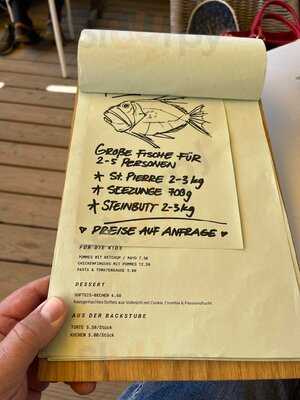 GROßE FISCHE FÜR
2-5 PERSONEN
* ST. PIERRE 2-3 kg
* SEEZUNGE 700g
* STEINBUTT 2-3 kg
♥ PREISE AUF ANFRAGE ♥
FÜR DIE KIDS
POMMES MIT KETCHUP / MAYO 7.50
CHICKENFINGERS MIT POMMES 12.50
PASTA & TOMATENSAUCE 9.00
DESSERT
SOFTEIS-BECHER 6.60
hausgemachtes Softeis aus Vollmilch mit Cookie, Crumble & Passionsfrucht
AUS DER BACKSTUBE
TORTE 5.50/Stück
KUCHEN 5.00/Stück